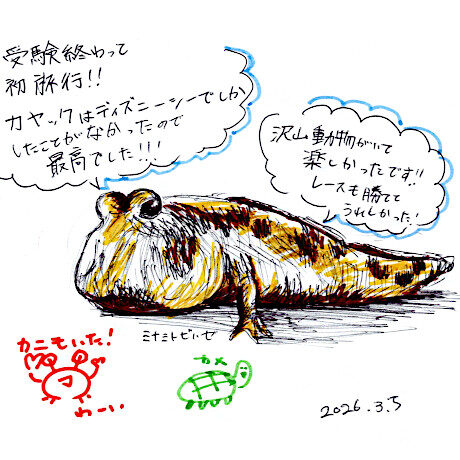 受験終わって
初旅行!!
カヤックはディズニーシーでしか
したことがなかったので
最高でした!!!
沢山動物がいて
楽しかったです!!
レースも勝てて
うれしかった!
ミナミトビハゼ
カニもいた!
わーい
カメ
2026.3.5